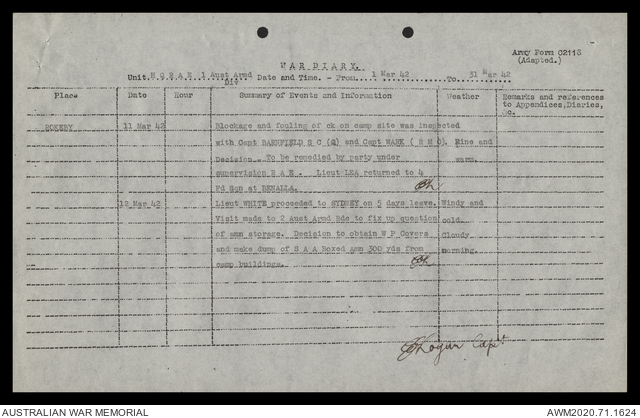 Army Form C2118
(Adapted.)
WAR DIARY.
Unit. H Q R A E. 1 Aust Armd Div Date and Time. - From.... 1 Mar 42 ........ To 31 Mar 42
Place Date Hour Summary of Events and Information Weather Remarks and references to Appendices, Diaries, &c.
ROKEBY 11 Mar 42 Blockage and fouling of ck on camp site was inspected
with Capt S C (Q) and Capt WARK ( R M O). Fine and
Decision - To be remedied by party under warm.
supervision R A E. Lieut LEA returned to 4
Fd Sqn at BENALLA.
12 Mar 42 Lieut WHITE proceeded to SYDNEY on 5 days leave. Windy and
Visit made to 2 Aust Armd Bde to fix up question cold.
of amm storage. Decision to obtain W P Covers Cloudy
and make dump of S A A Boxed Amm 300 yds from morning.
camp buildings.
Capt
AUSTRALIAN WAR MEMORIAL AWM2020.71.1624